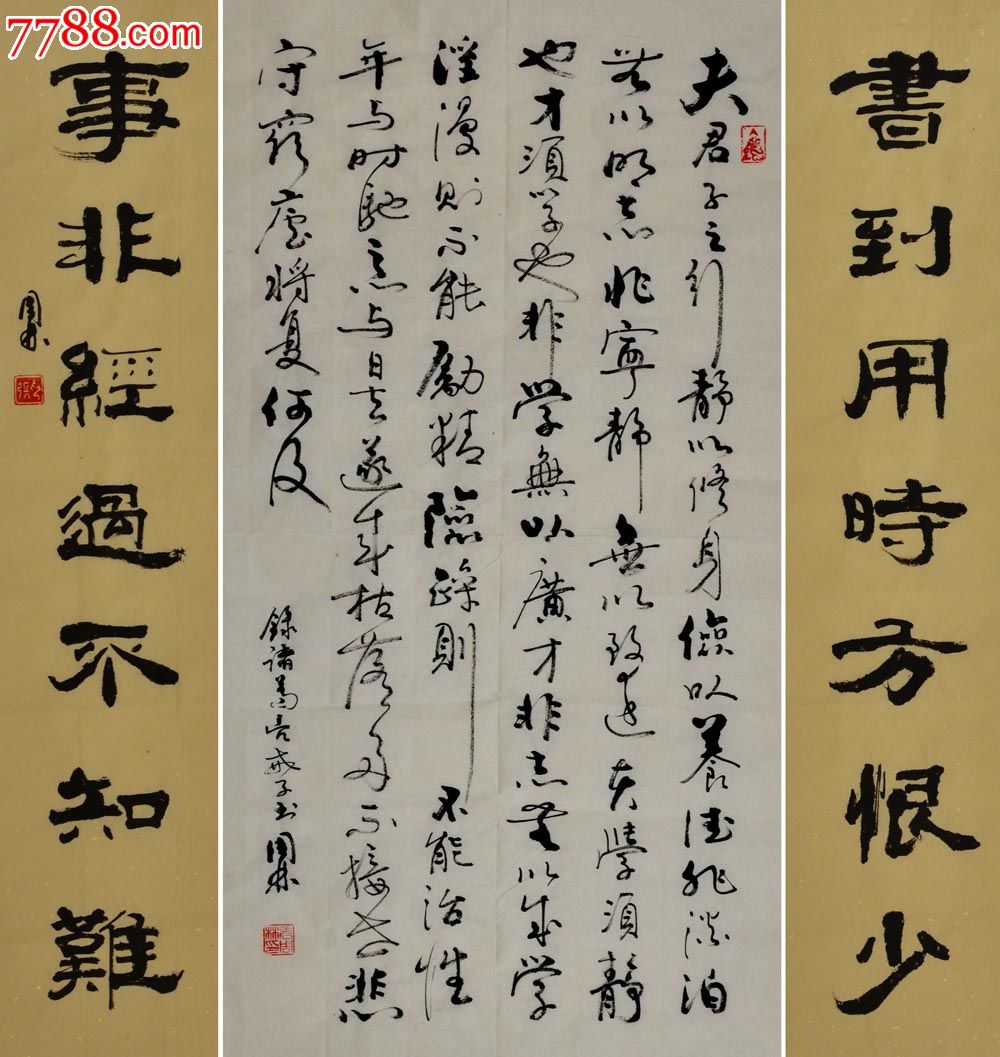 7788.com
書到用時方恨少
夫君子之行静以修身儉以養德非淡泊
無以明志非寧静無以致遠夫學須静
也才須学也非学無以廣才非志無以成学
淫漫則不能勵精險躁則不能治性
年与时馳意与日去遂成枯落多不接世悲
守窮廬將复何及
錄諸葛亮戒子书
事非經過不知難